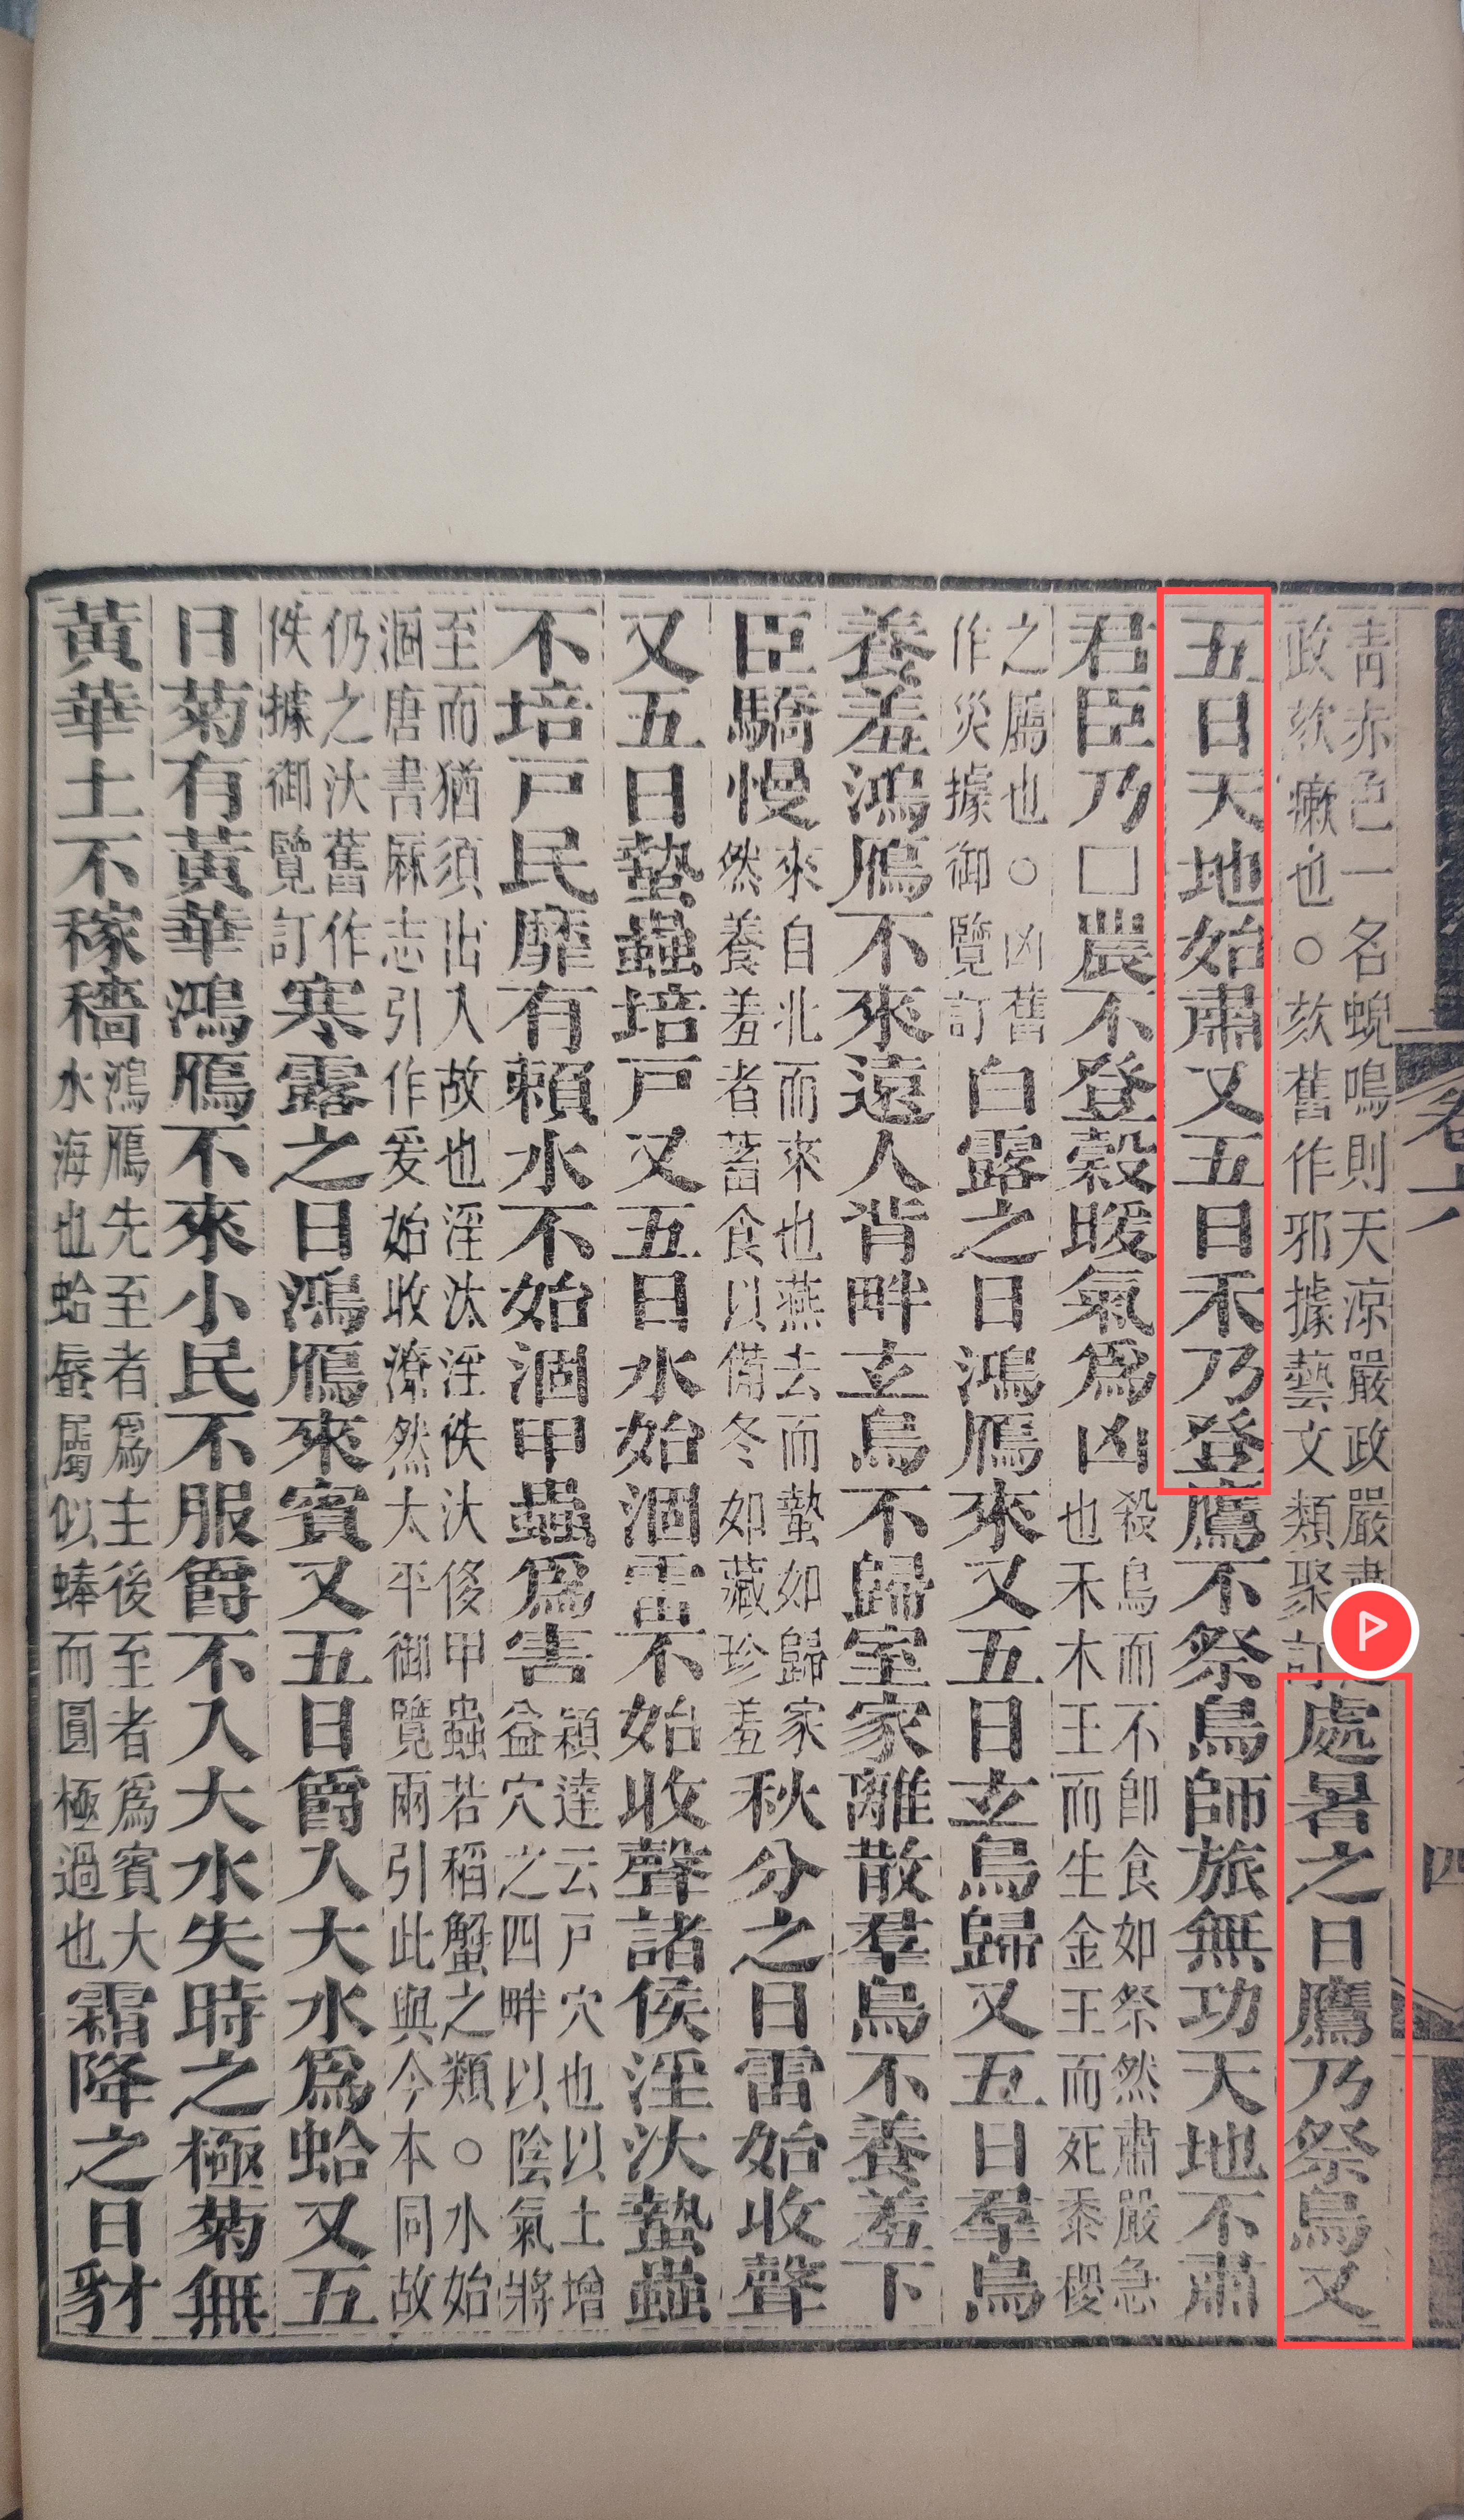 卷六
四
青赤色一名蜺鳴則天涼嚴政嚴肅政欬瘷也○欬舊作邪據藝文類聚訂處暑之日鷹乃祭鳥又
五日天地始肅又五日禾乃登鷹不祭鳥師旅無功天地不肅
君臣乃□農不登穀暖氣爲凶殺鳥而不卽食如祭然肅嚴急也禾木王而生金王而死黍稷
之屬也○凶舊作災據御覽訂白露之日鴻鴈來又五日玄鳥歸又五日羣鳥
養羞鴻鴈不來遠人背畔玄鳥不歸室家離散羣鳥不養羞下
臣驕慢來自北而來也燕去而蟄如歸家然養羞者蓄食以備冬如藏珍羞秋分之日雷始收聲
又五日蟄蟲培戸又五日水始涸雷不始收聲諸侯淫汏蟄蟲
不培戸民靡有賴水不始涸甲蟲爲害穎達云戸穴也以土增益穴之四畔以陰氣將
至而猶須出入故也淫汰淫佚汏侈甲蟲若稻蟹之類○水始涸唐書厤志引作爰始收潦然太平御覽兩引此與今本同故
仍之汏舊作佚據御覽訂寒露之日鴻鴈來賓又五日爵入大水爲蛤又五
日菊有黃華鴻鴈不來小民不服爵不入大水失時之極菊無
黃華土不稼穡鴻鴈先至者爲主後至者爲賓大水海也蛤蜃屬似蜯而圓極過也霜降之日豺